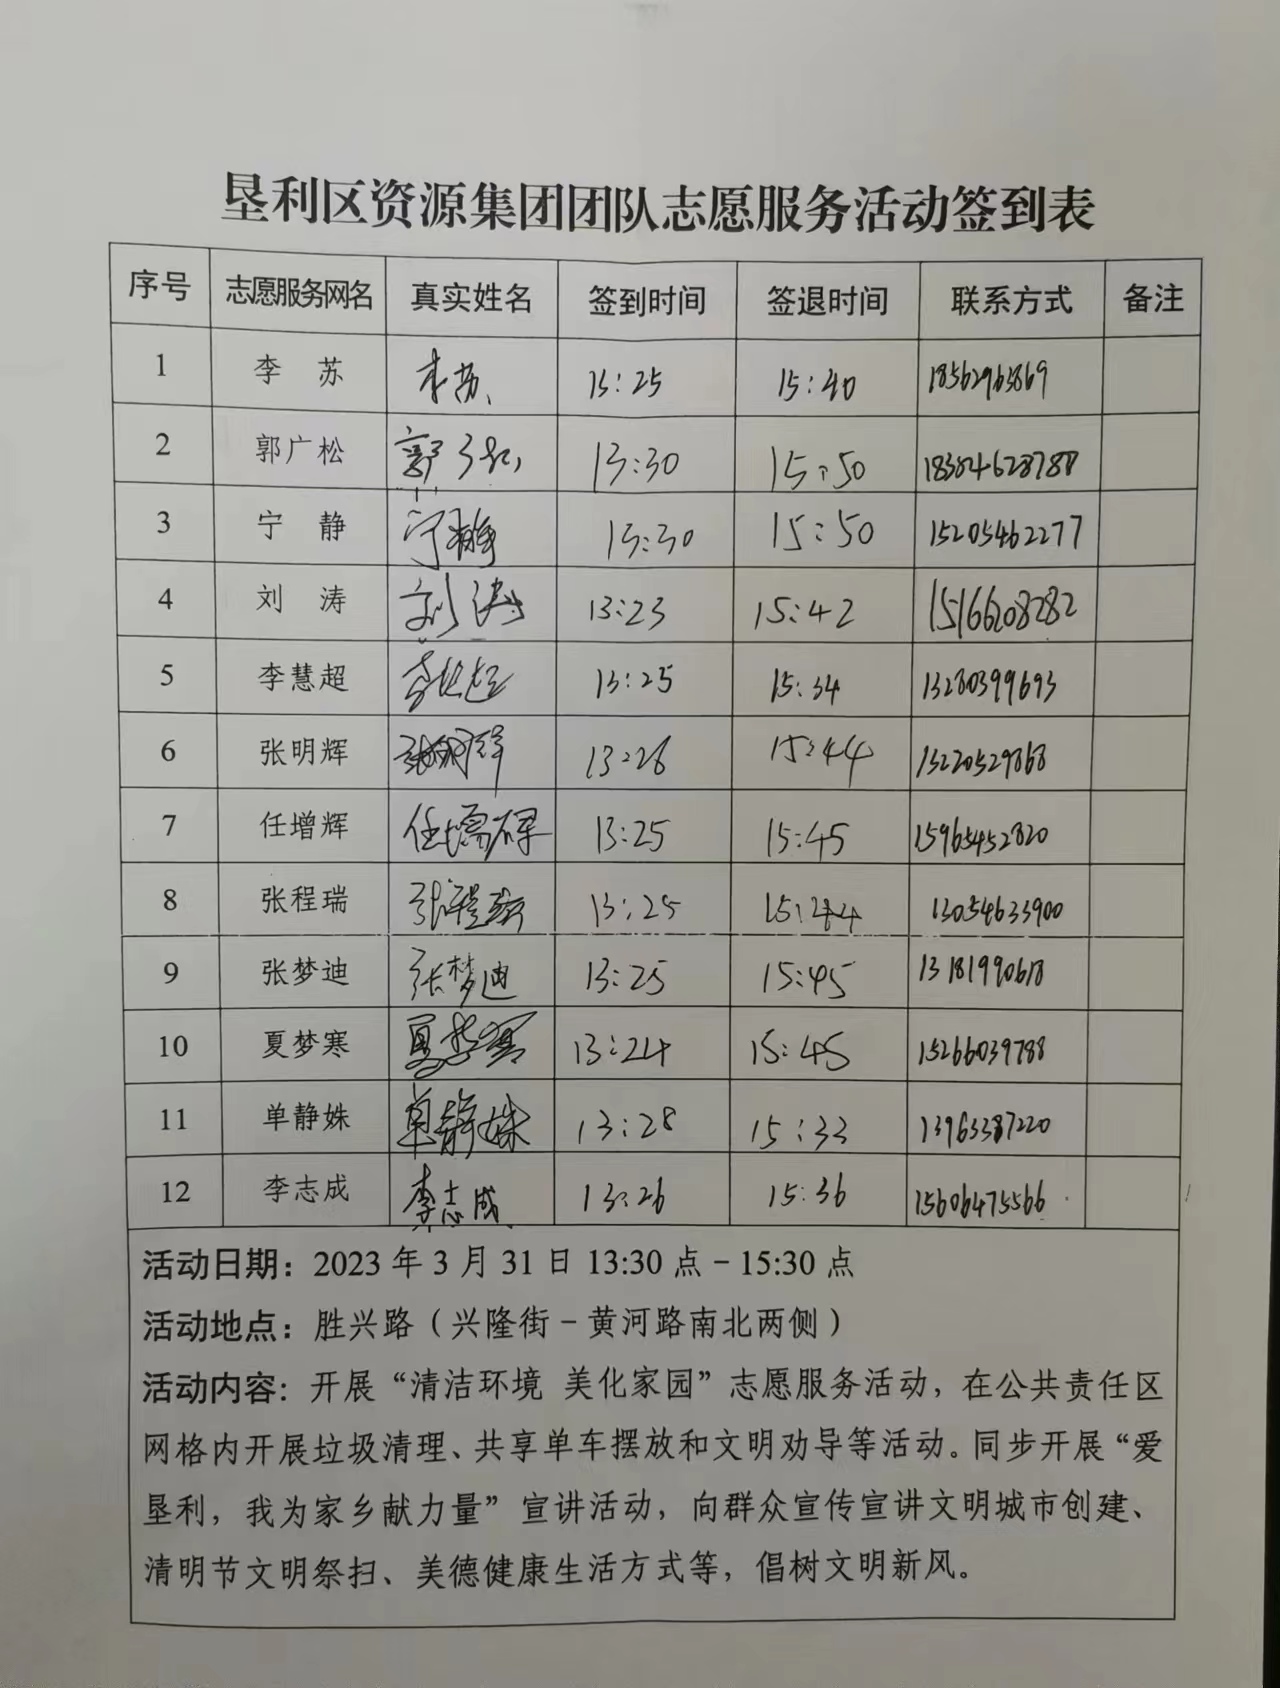 垦利区资源集团团队志愿服务活动签到表
序号 志愿服务网名 真实姓名 签到时间 签退时间 联系方式 备注
1 李 苏 李苏 13:25 15:40 18562963869
2 郭广松 郭广松 13:30 15:50 18304628788
3 宁 静 宁静 13:30 15:50 15205462277
4 刘 涛 刘涛 13:23 15:42 15166208282
5 李慧超 李慧超 13:25 15:34 13280399693
6 张明辉 张明辉 13:26 15:44 15220529868
7 任增辉 任增辉 13:25 15:45 15965452820
8 张程瑞 张程瑞 13:25 15:44 13054633900
9 张梦迪 张梦迪 13:25 15:45 13181990618
10 夏梦寒 夏梦寒 13:24 15:45 15266039788
11 单静姝 单静姝 13:28 15:33 13963387220
12 李志成 李志成 13:26 15:36 15606475566
活动日期：2023 年 3 月 31 日 13:30 点－15:30 点
活动地点：胜兴路（兴隆街－黄河路南北两侧）
活动内容：开展“清洁环境 美化家园”志愿服务活动，在公共责任区
网格内开展垃圾清理、共享单车摆放和文明劝导等活动。同步开展“爱
垦利，我为家乡献力量”宣讲活动，向群众宣传宣讲文明城市创建、
清明节文明祭扫、美德健康生活方式等，倡树文明新风。